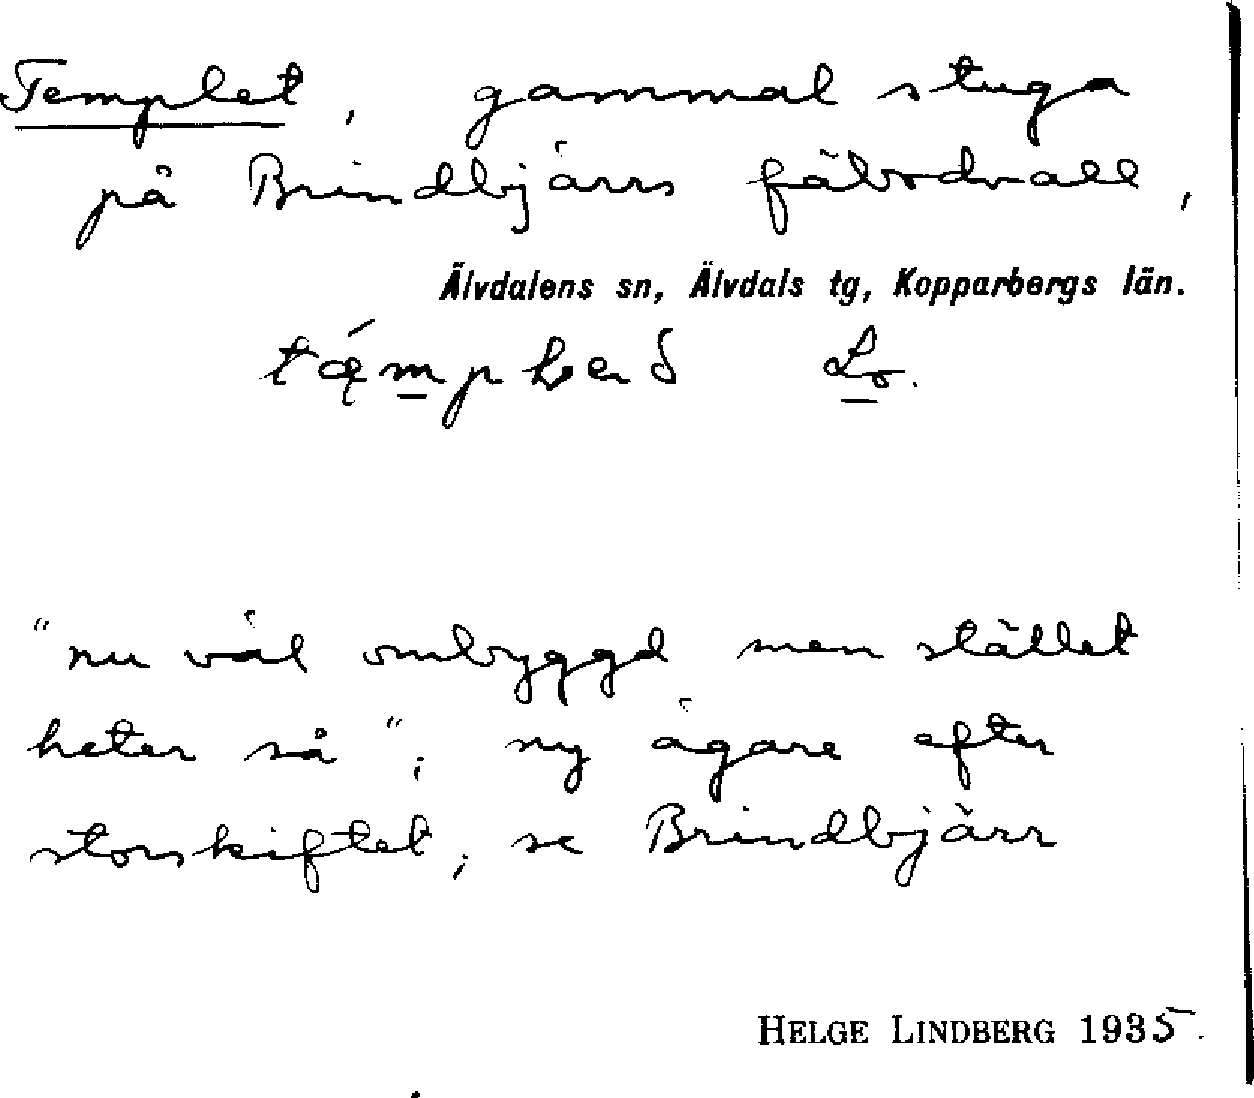 Templet, gammal stuga
på Brindbjärrs fäbodvall,
Älvdalens sn, Älvdals tg, Kopparbergs län.
Lo.
"nu väl ombyggd men stället
heter så"; ny ägare efter
storskiftet, se Brindbjärr
HELGE LINDBERG 1935.